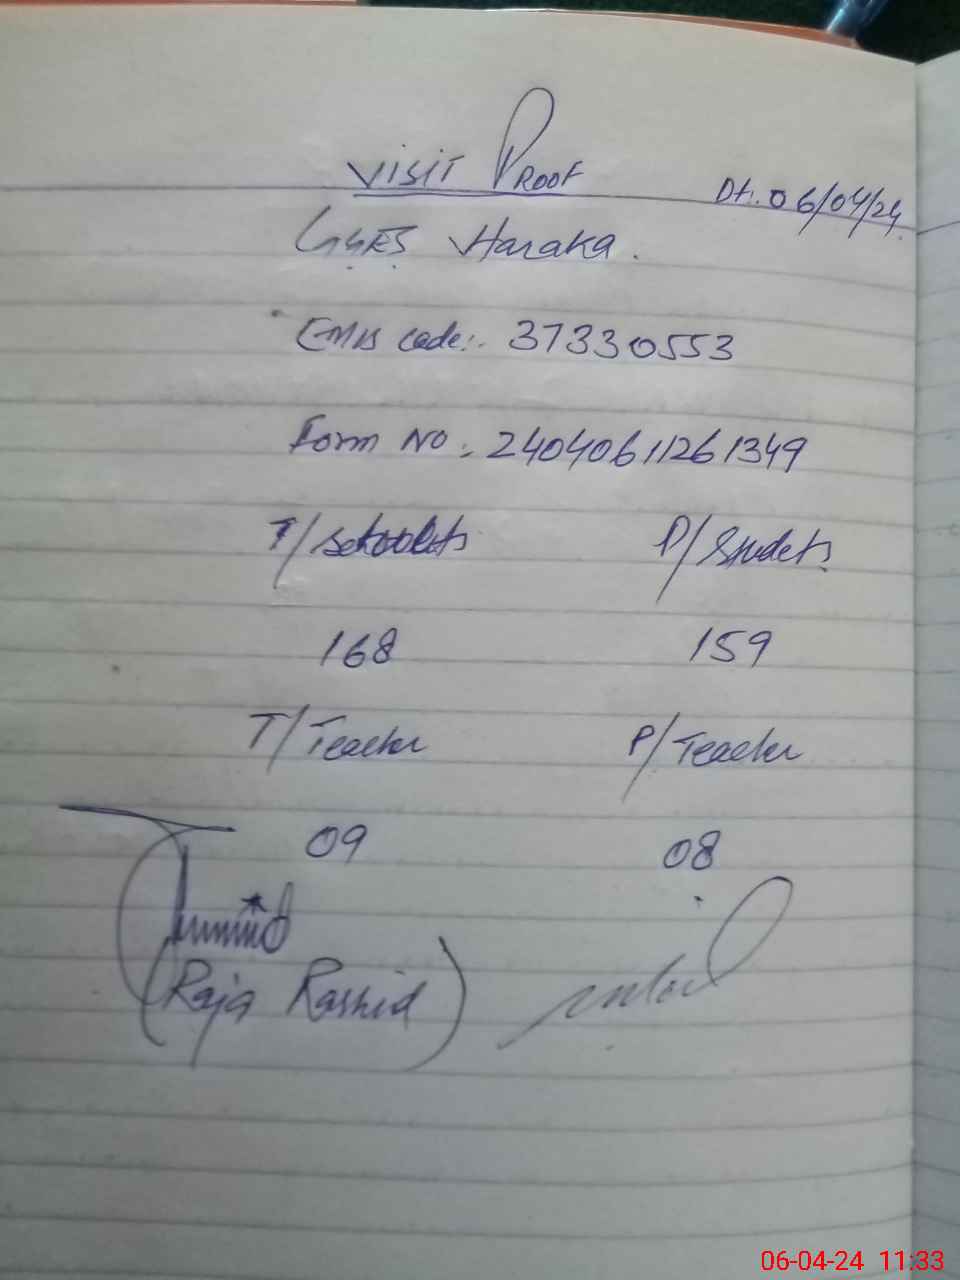 VISIT PROOF
Dt:. 06/04/24
GGES Haraka.
EMIS code:. 37330553
Form NO: 24040611261349
T/ P/Students
168 159
T/Teacher P/Teacher
09 08
(Raja Rashid)
06-04-24 11:33